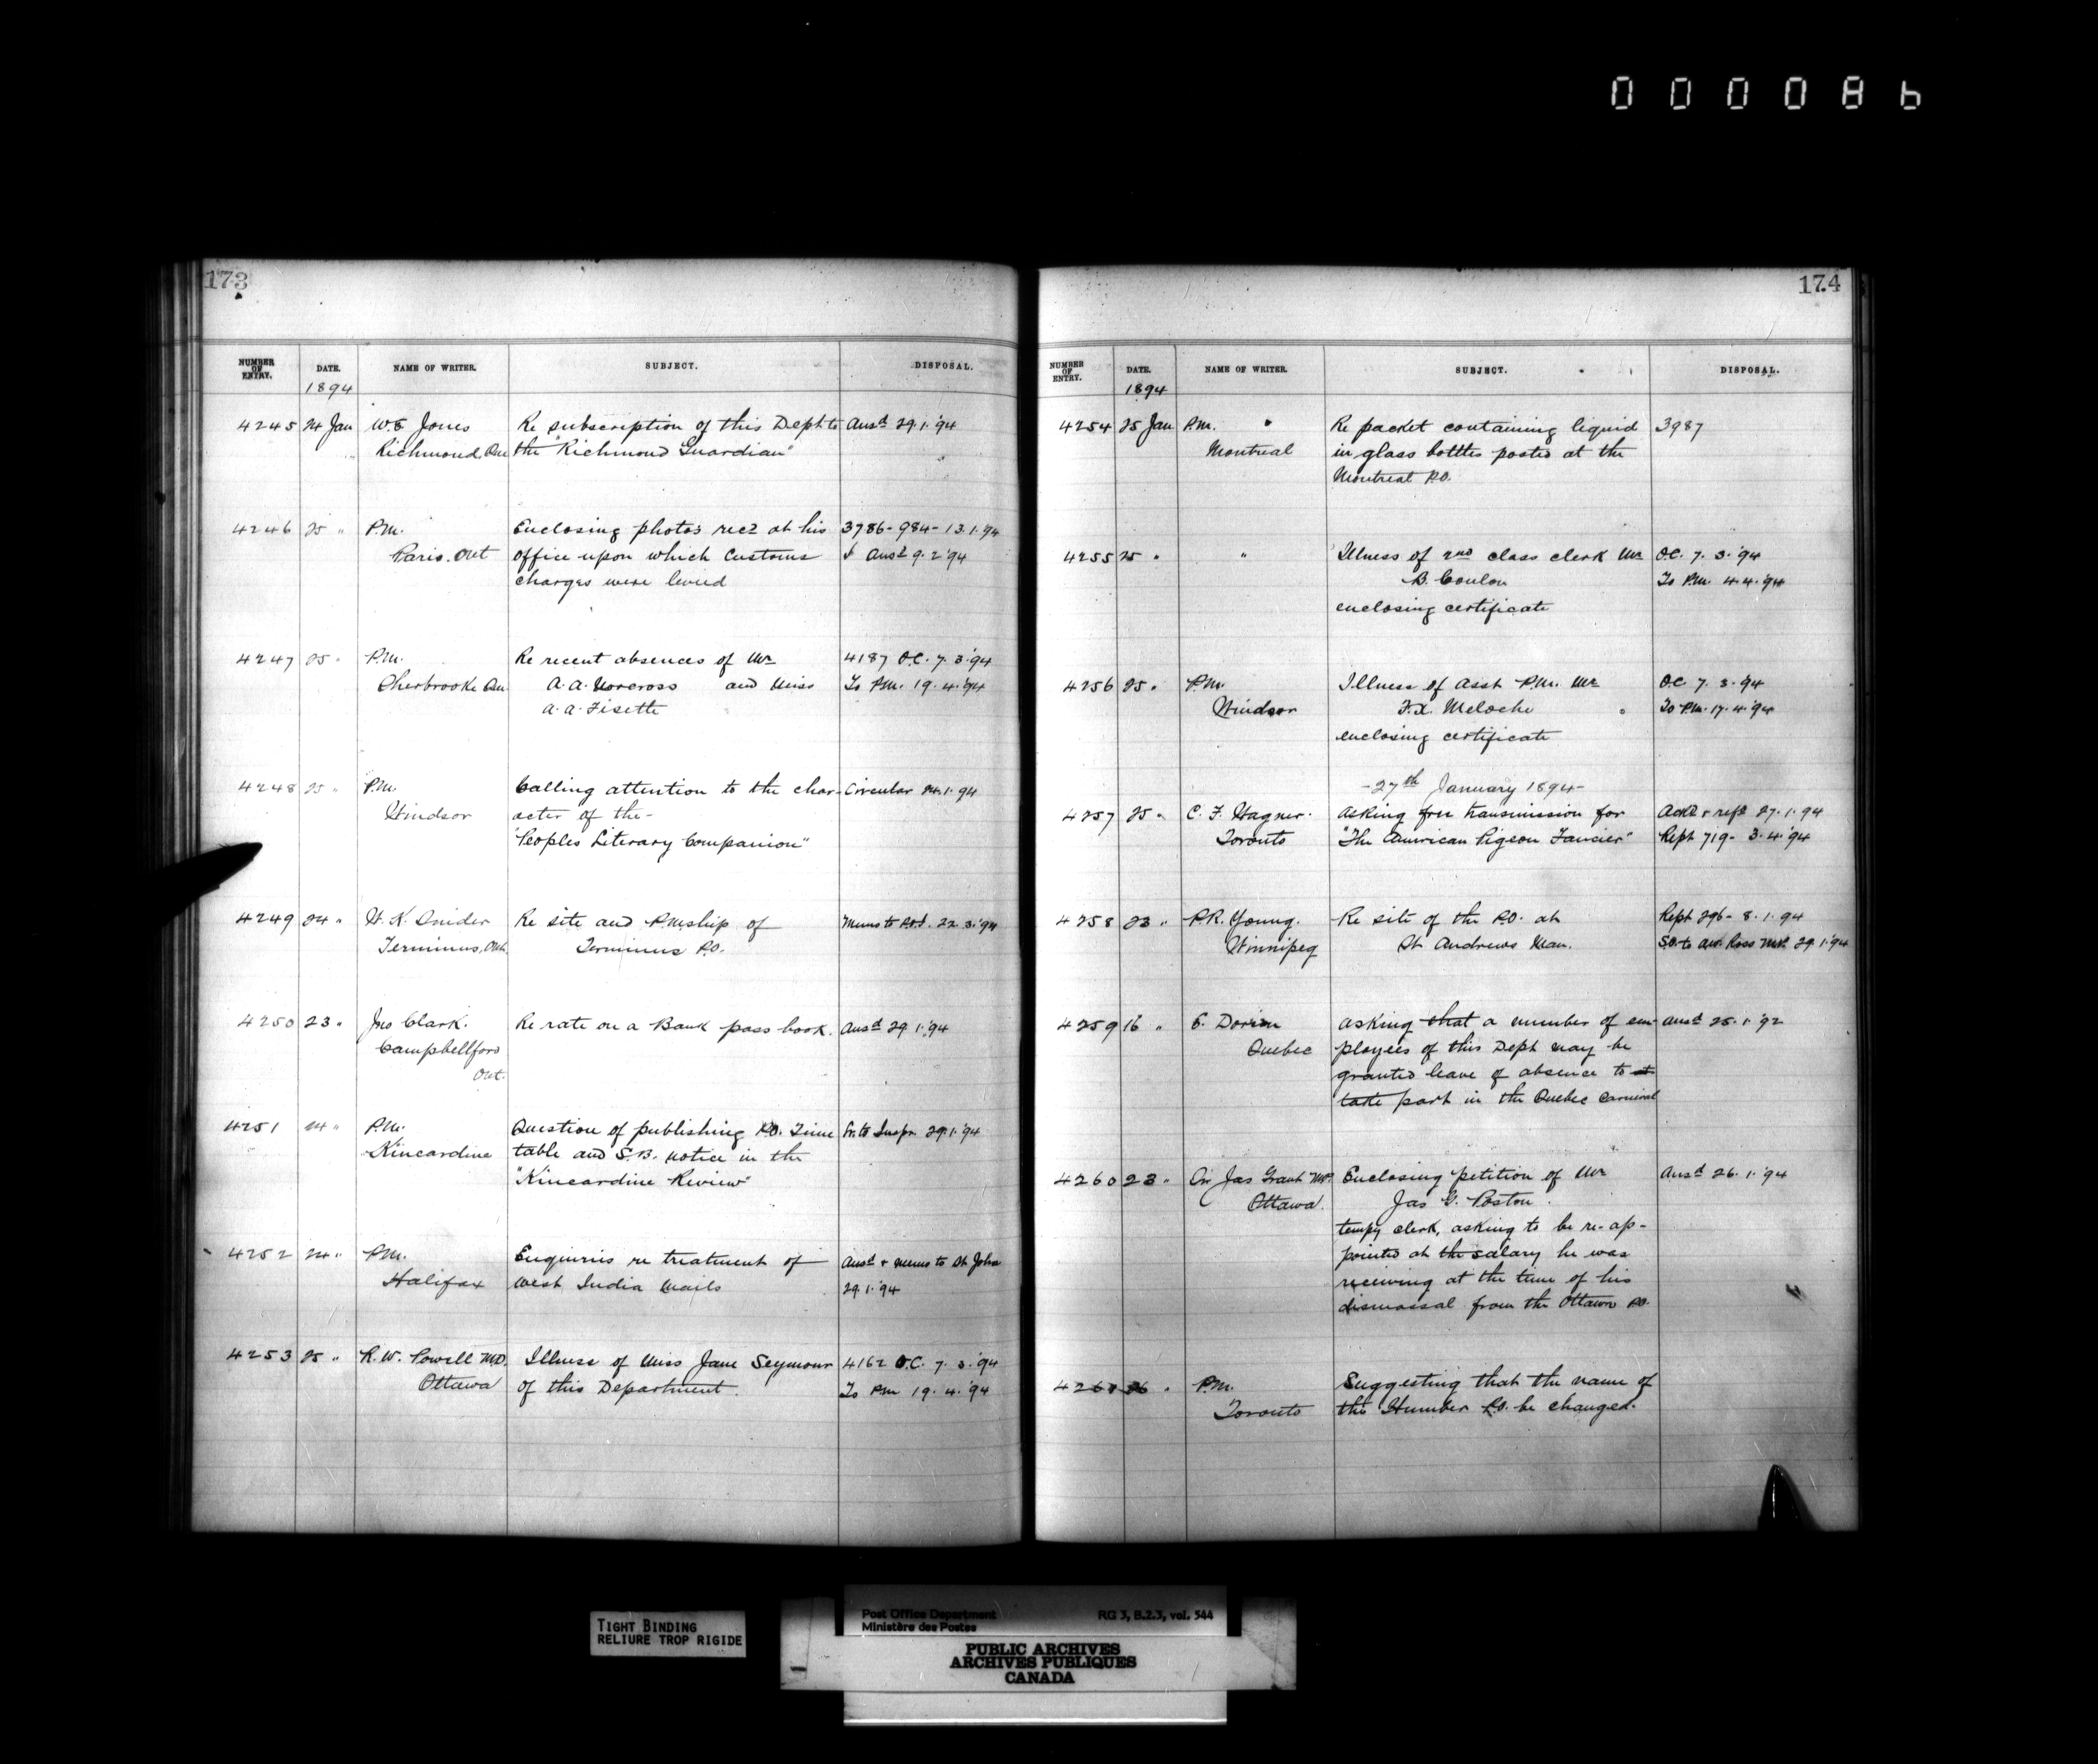 000086
173
NUMBER OF ENTRY. DATE. NAME OF WRITER. SUBJECT. DISPOSAL.
1894
4245 24 Jan W.E Jones Re subscription of this Dept to Ansd 29.1.'94
Richmond, Que the "Richmond Guardian"
4246 25 " P.M. Enclosing photos recd at his 3786-984-13.1.'94
Paris. Ont office upon which Customs & Ansd 9.2.'94
charges were levied
4247 25 " P.M. Re recent absences of Mr 4187 O.C. 7.3.'94
Sherbrooke Que A.A. Norcross and Miss To P.M. 19.4.'94
A.A. Fisette
4248 25 " P.M. Calling attention to the char- Circular 24.1.94
Windsor acter of the-
"Peoples Literary Companion"
4249 24 " W.K. Snider Re site and P.Mship of Memo to P.O.I. 22.3.'94
Terminus, Ont. Terminus P.O.
4250 23 " Jno Clark. Re rate on a Bank pass book. Ansd 29.1.'94
Campbellford
Ont.
4251 24 " P.M. Question of publishing P.O. Time Fr. to Inspr. 29.1.'94
Kincardine table and S.B. notice in the
"Kincardine Review"
4252 24 " P.M. Enquiries re treatment of Ansd & memo to St John
Halifax West India Mails 29.1.'94
4253 25 " R.W. Powell M.D. Illness of Miss Jane Seymour 4162 O.C. 7.3.'94
Ottawa of this Department. To P.M. 19.4.'94
174
NUMBER OF ENTRY. DATE. NAME OF WRITER. SUBJECT. DISPOSAL.
1894
4254 25 Jan P.M. Re packet containing liquid 3987
Montreal in glass bottles posted at the
Montreal P.O.
4255 25 " " Illness of 2nd class clerk Mr O.C. 7.3.'94
B. Coulon To P.M. 4.4.'94
enclosing certificate
4256 25 " P.M. Illness of Asst P.M. Mr O.C 7.3.'94
Windsor F.X. Meloche To P.M. 17.4.'94
enclosing certificate
-27th January 1894-
4257 25 " C.F. Wagner. Asking free transmission for Ackd & refd 27.1.94
Toronto "The American Pigeon Fancier" Rept 719- 3.4.'94
4258 23 " P.R. Young. Re site of the P.O. at Rept 296-8.1.94
Winnipeg St Andrews Man. S.O. to A.W. Ross M.P. 29.1.'94
4259 16 " E. Dorion Asking that a number of em- Ansd 25.1.92
Quebec ployees of this Dept may be
granted leave of absence to
take part in the Quebec Carnival
4260 23 " Sir Jas Grant M.P. Enclosing petition of Mr Ansd 26.1.'94
Ottawa. Jas G. Poston.
tempy clerk, asking to be re-ap-
pointed at the salary he was
receiving at the time of his
dismassal from the Ottawa P.O.
4261 26 " P.M. Suggesting that the name of
Toronto the Humber P.O. be changed.
TIGHT BINDING
RELIURE TROP RIGIDE
Post Office Department RG 3, B.2.3, vol. 544
Ministère des Postes
PUBLIC ARCHIVES
ARCHIVES PUBLIQUES
CANADA